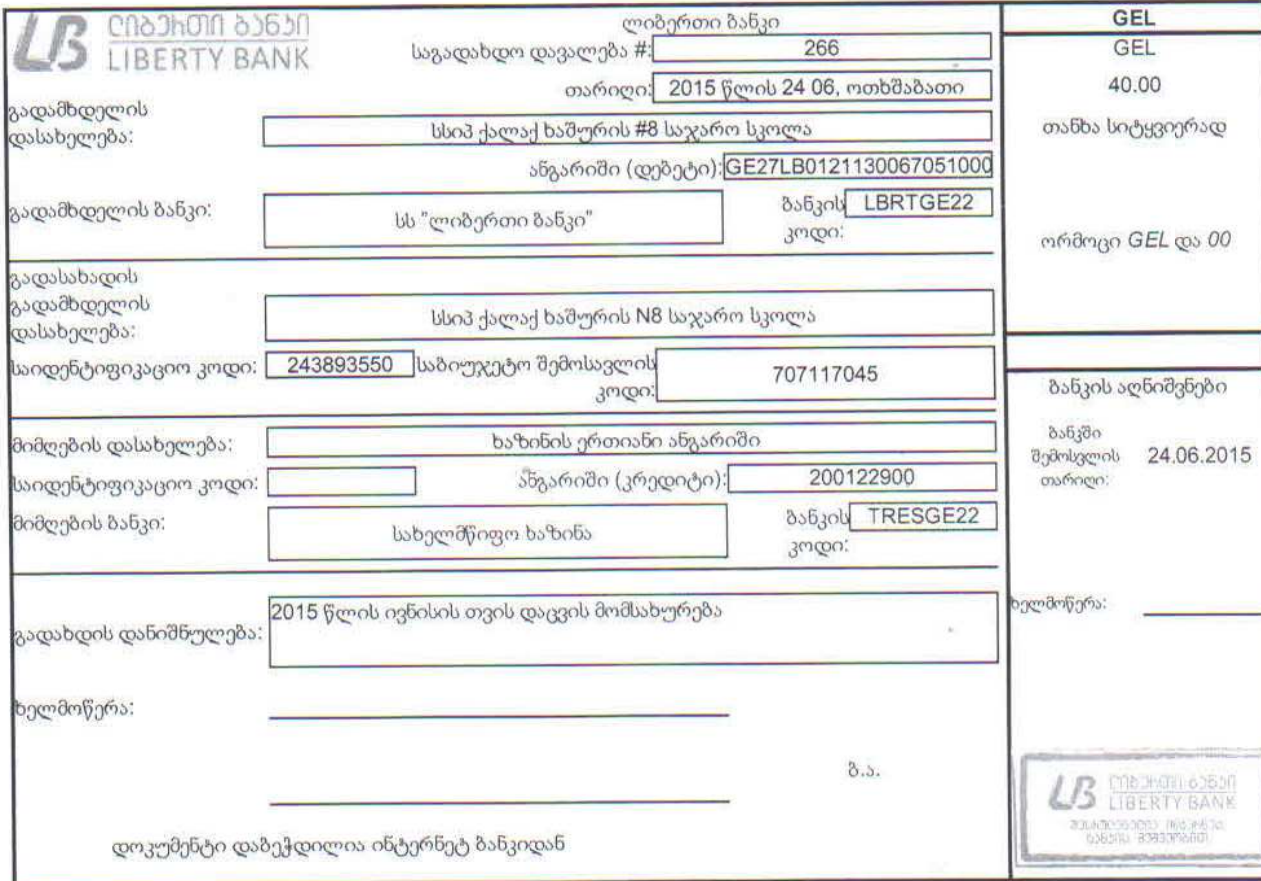 ლიბერთი ბანკი
LIBERTY BANK
ლიბერთი ბანკი
საგადახდო დავალება #: 266
თარიღი: 2015 წლის 24 06, ოთხშაბათი
გადამხდელის
დასახელება: სსიპ ქალაქ ხაშურის #8 საჯარო სკოლა
ანგარიში (დებეტი): GE27LB0121130067051000
გადამხდელის ბანკი: სს "ლიბერთი ბანკი" ბანკის კოდი: LBRTGE22
გადასახადის
გადამხდელის
დასახელება: სსიპ ქალაქ ხაშურის N8 საჯარო სკოლა
საიდენტიფიკაციო კოდი: 243893550 საბიუჯეტო შემოსავლის კოდი: 707117045
მიმღების დასახელება: ხაზინის ერთიანი ანგარიში
საიდენტიფიკაციო კოდი: ანგარიში (კრედიტი): 200122900
მიმღების ბანკი: სახელმწიფო ხაზინა ბანკის კოდი: TRESGE22
გადახდის დანიშნულება: 2015 წლის ივნისის თვის დაცვის მომსახურება
ხელმოწერა:
ბ.ა.
დოკუმენტი დაბეჭდილია ინტერნეტ ბანკიდან
GEL
GEL
40.00
თანხა სიტყვიერად
ორმოცი GEL და 00
ბანკის აღნიშვნები
ბანკში
შემოსვლის 24.06.2015
თარიღი:
ხელმოწერა:
ლიბერთი ბანკი
LIBERTY BANK